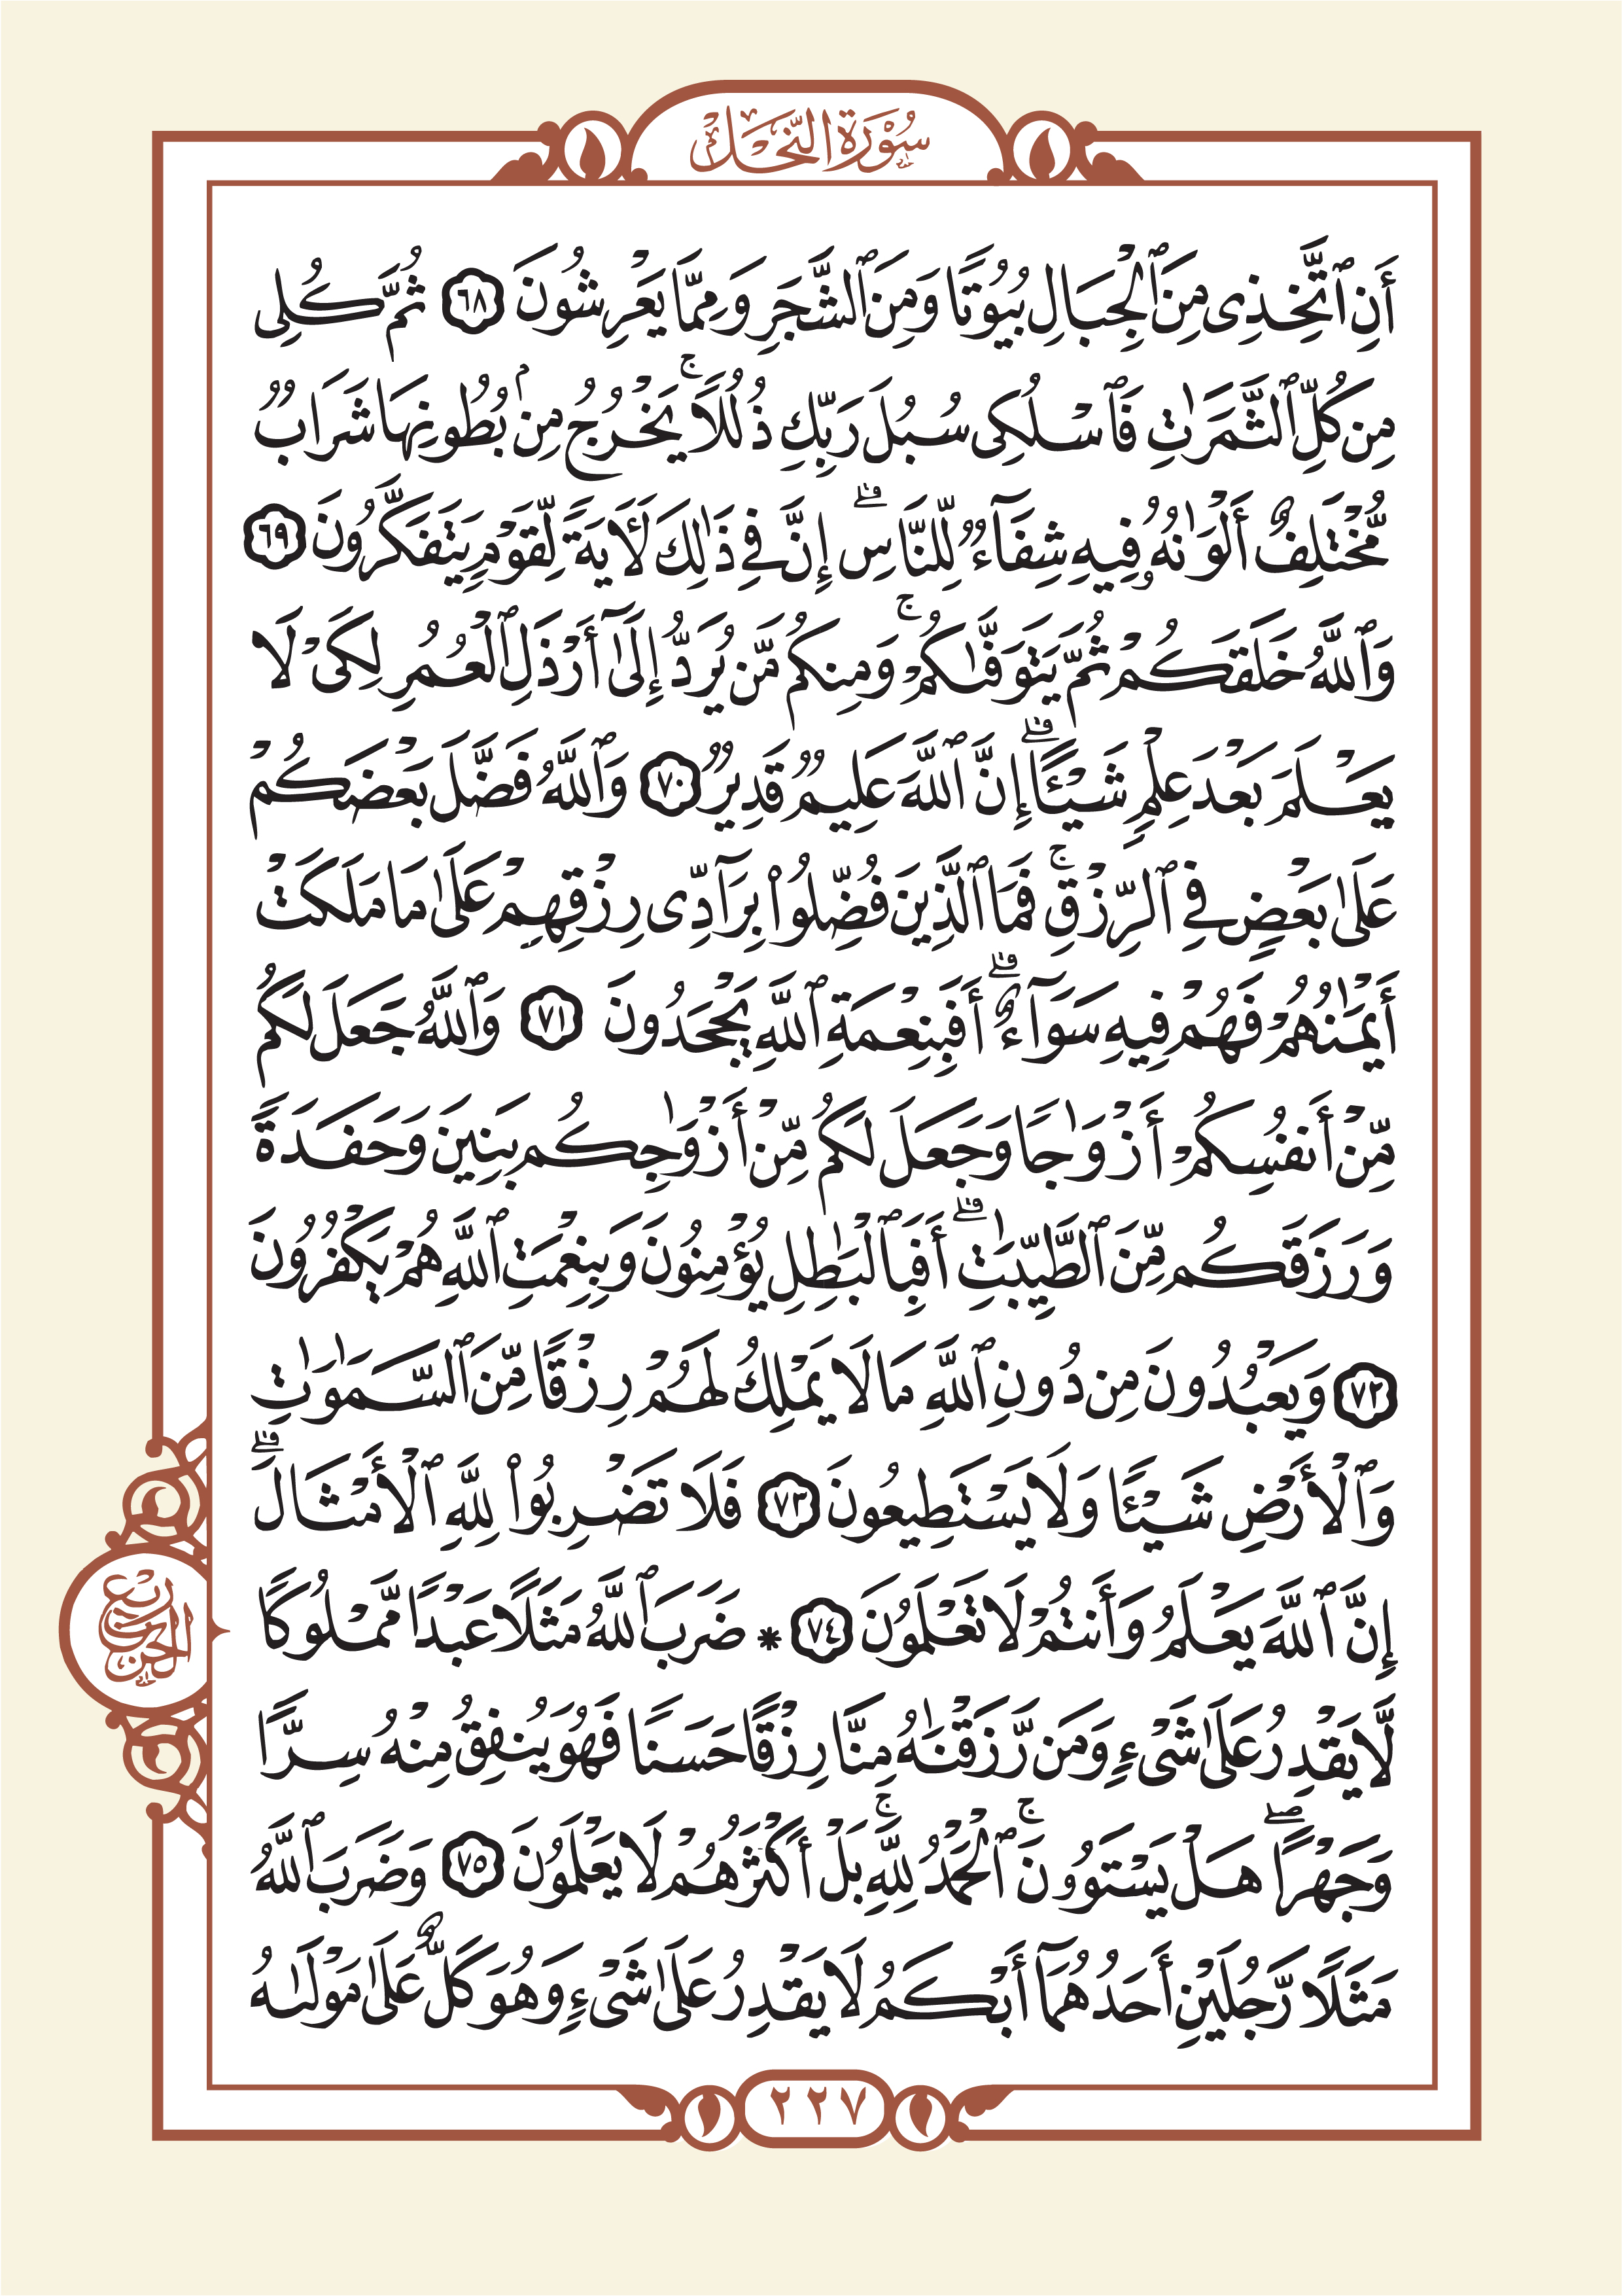 سُورَةُ النَّحْلِ
أَنِ ٱتَّخِذِى مِنَ ٱلْجِبَالِ بُيُوتًا وَمِنَ ٱلشَّجَرِ وَمِمَّا يَعْرِشُونَ ٦٨ ثُمَّ كُلِى
مِن كُلِّ ٱلثَّمَرَٰتِ فَٱسْلُكِى سُبُلَ رَبِّكِ ذُلُلًا ۚ يَخْرُجُ مِنۢ بُطُونِهَا شَرَابٌ
مُّخْتَلِفٌ أَلْوَٰنُهُۥ فِيهِ شِفَآءٌ لِّلنَّاسِ ۗ إِنَّ فِى ذَٰلِكَ لَـَٔايَةً لِّقَوْمٍ يَتَفَكَّرُونَ ٦٩
وَٱللَّهُ خَلَقَكُمْ ثُمَّ يَتَوَفَّىٰكُمْ ۚ وَمِنكُم مَّن يُرَدُّ إِلَىٰٓ أَرْذَلِ ٱلْعُمُرِ لِكَىْ لَا
يَعْلَمَ بَعْدَ عِلْمٍ شَيْـًٔا ۗ إِنَّ ٱللَّهَ عَلِيمٌ قَدِيرٌ ٧٠ وَٱللَّهُ فَضَّلَ بَعْضَكُمْ
عَلَىٰ بَعْضٍ فِى ٱلرِّزْقِ ۚ فَمَا ٱلَّذِينَ فُضِّلُوا۟ بِرَآدِّى رِزْقِهِمْ عَلَىٰ مَا مَلَكَتْ
أَيْمَـٰنُهُمْ فَهُمْ فِيهِ سَوَآءٌ ۗ أَفَبِنِعْمَةِ ٱللَّهِ يَجْحَدُونَ ٧١ وَٱللَّهُ جَعَلَ لَكُم
مِّنْ أَنفُسِكُمْ أَزْوَٰجًا وَجَعَلَ لَكُم مِّنْ أَزْوَٰجِكُم بَنِينَ وَحَفَدَةً
وَرَزَقَكُم مِّنَ ٱلطَّيِّبَـٰتِ ۗ أَفَبِٱلْبَـٰطِلِ يُؤْمِنُونَ وَبِنِعْمَتِ ٱللَّهِ هُمْ يَكْفُرُونَ
٧٢ وَيَعْبُدُونَ مِن دُونِ ٱللَّهِ مَا لَا يَمْلِكُ لَهُمْ رِزْقًا مِّنَ ٱلسَّمَـٰوَٰتِ
وَٱلْأَرْضِ شَيْـًٔا وَلَا يَسْتَطِيعُونَ ٧٣ فَلَا تَضْرِبُوا۟ لِلَّهِ ٱلْأَمْثَالَ ۗ
إِنَّ ٱللَّهَ يَعْلَمُ وَأَنتُمْ لَا تَعْلَمُونَ ٧٤ * ضَرَبَ ٱللَّهُ مَثَلًا عَبْدًا مَّمْلُوكًا
لَّا يَقْدِرُ عَلَىٰ شَىْءٍ وَمَن رَّزَقْنَـٰهُ مِنَّا رِزْقًا حَسَنًا فَهُوَ يُنفِقُ مِنْهُ سِرًّا
وَجَهْرًا ۖ هَلْ يَسْتَوُۥنَ ۚ ٱلْحَمْدُ لِلَّهِ ۚ بَلْ أَكْثَرُهُمْ لَا يَعْلَمُونَ ٧٥ وَضَرَبَ ٱللَّهُ
مَثَلًا رَّجُلَيْنِ أَحَدُهُمَآ أَبْكَمُ لَا يَقْدِرُ عَلَىٰ شَىْءٍ وَهُوَ كَلٌّ عَلَىٰ مَوْلَىٰهُ
ربع
الحزب
٢٢٧